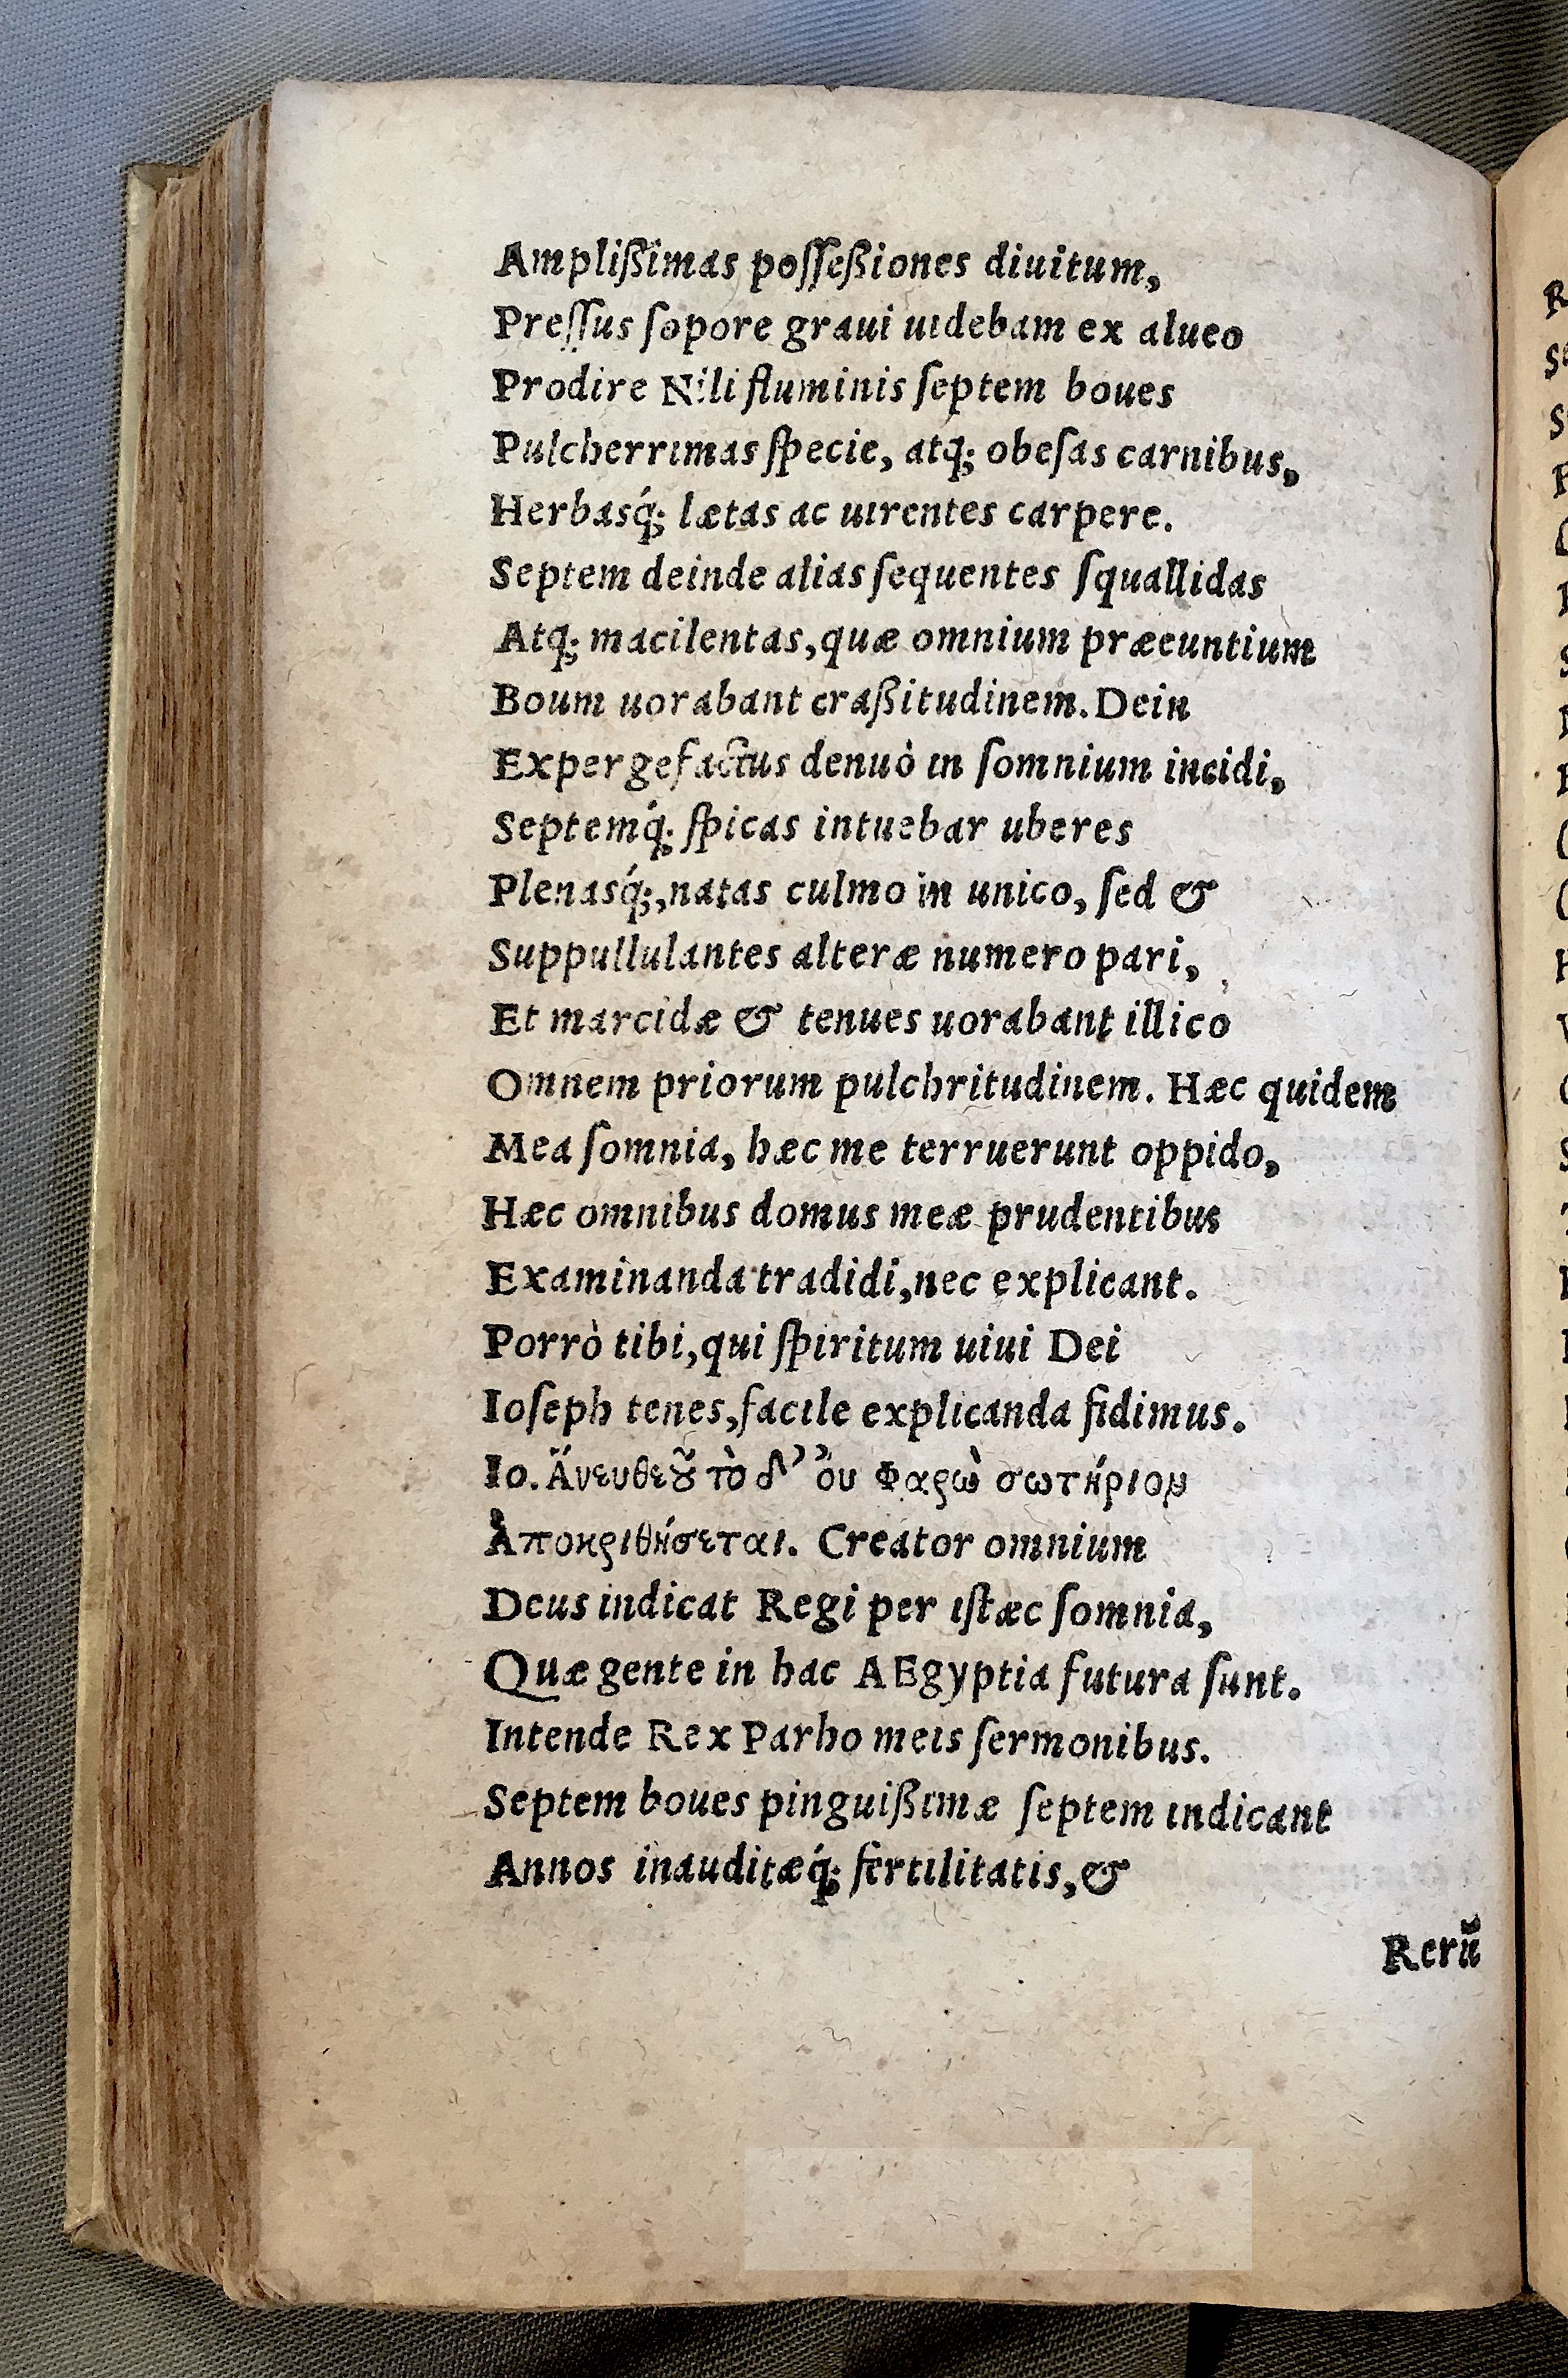 Ampliſſimas poſſeßiones diuitum,
Preſſus ſopore graui uidebam ex alueo
Prodire Nili fluminis ſeptem boues
Pulcherrimas ſpecie, atq; obeſas carnibus,
Herbasq́; lætas ac uirentes carpere.
Septem deinde alias ſequentes ſquallidas
Atq; macilentas, quæ omnium præeuntium
Boum uorabant craßitudinem. Dein
Expergefactus denuò in ſomnium incidi,
Septemq́; ſpicas intuebar uberes
Plenasq́;, natas culmo in unico, ſed &
Suppullulantes alteræ numero pari,
Et marcidæ & tenues uorabant illico
Omnem priorum pulchritudinem. Hæc quidem
Mea ſomnia, hæc me terruerunt oppido,
Hæc omnibus domus meæ prudentibus
Examinanda tradidi, nec explicant.
Porrò tibi, qui ſpiritum uiui Dei
Ioſeph tenes, facile explicanda fidimus.
Io. Ἄνευθεȣ͂ τὸ δ’ ὄυ Φαρὼ σωτήριον
Ἀποκριθήσεται. Creator omnium
Deus indicat Regi per iſtæc ſomnia,
Quæ gente in hac AEgyptia futura ſunt.
Intende Rex Parho meis ſermonibus.
Septem boues pinguißimæ ſeptem indicant
Annos inauditæq́; fertilitatis, &
Rerũ